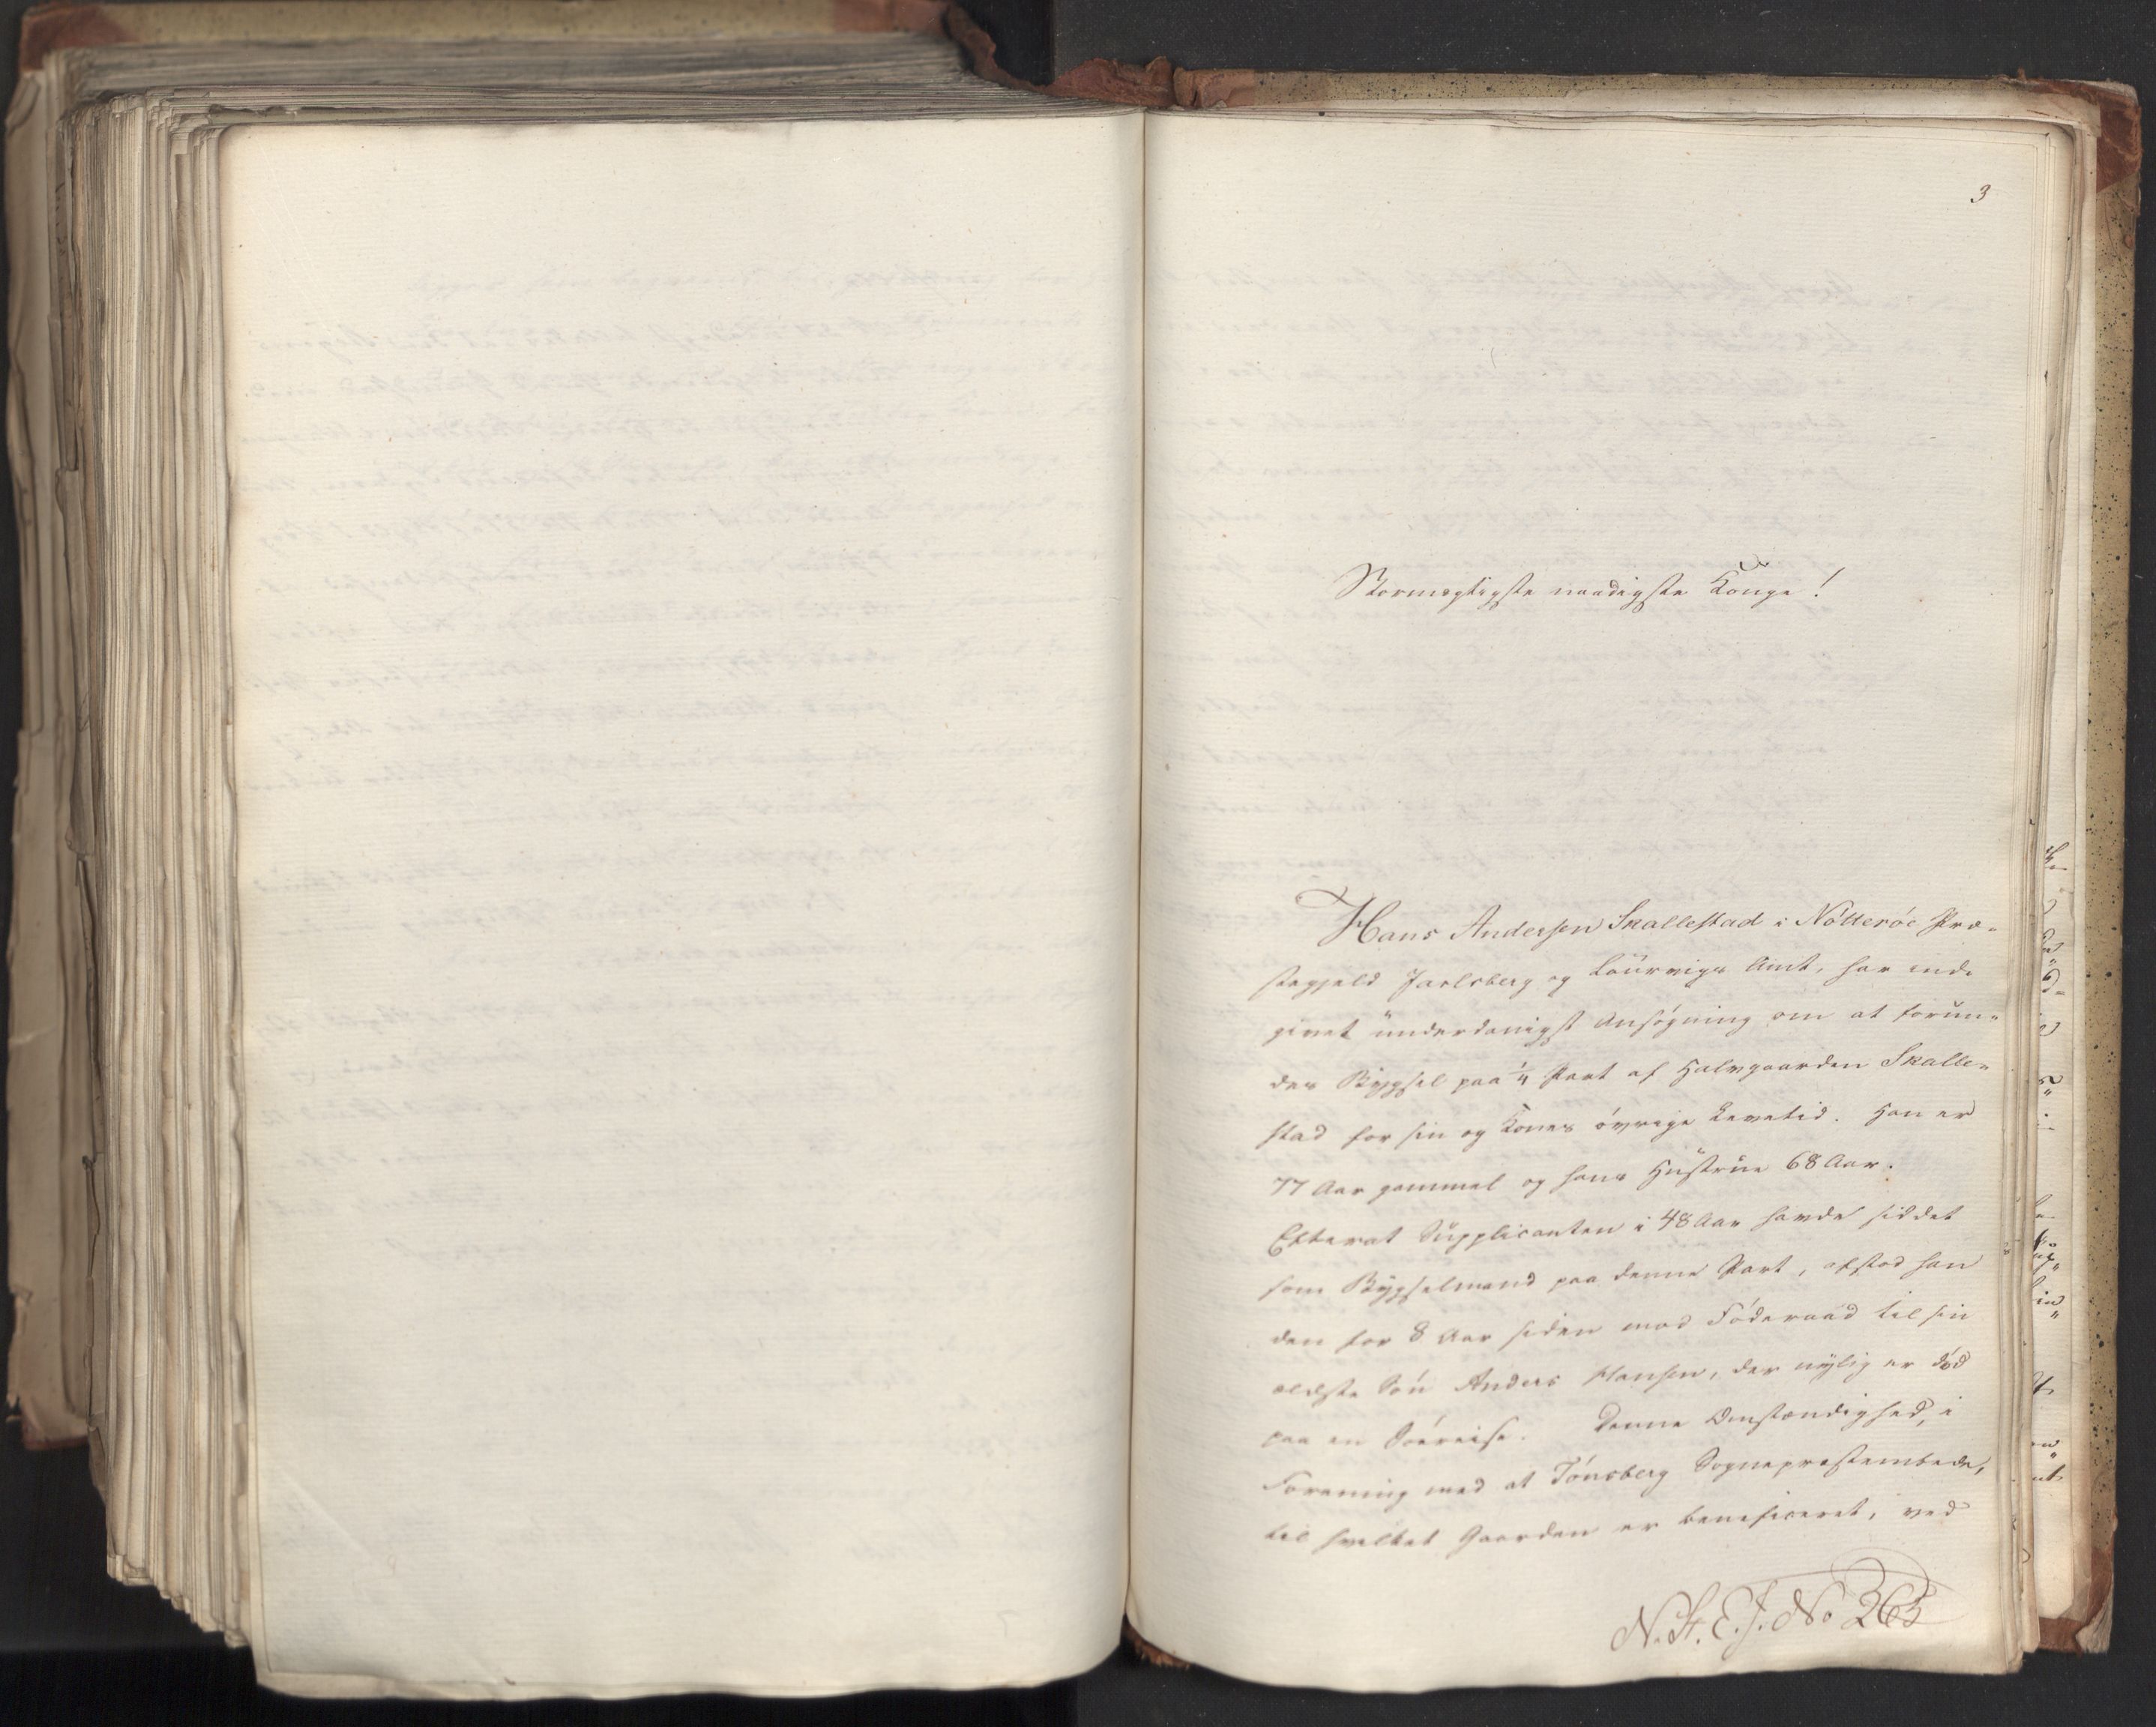 3
Stormægtigste naadigste Konge!
Hans Andersen Skallestad i Nötteröe Præ-
stegjeld Jarlsberg og Laurvigs Amt, har ind-
givet underdanigst Ansögning om at forun-
des Bygsel paa 1/4 Part af Halvgaarden Skalle-
stad for sin og Kones övrige Levetid. Han er
77 Aar gammel og hans Hustrue 68 Aar.
Efterat Supplicanten i 48 Aar havde siddet
som Bygselmand paa denne Part, afstod han
den for 8 Aar siden mod Föderaad til sin
ældste Sön Anders Hansen, der nylig er död
paa en Söereise. Denne Omstændighed, i
Forening med at Tönsberg Sognepræstembede,
til hvilket Gaarden er beneficeret, ved
N. St. E. J. No 263